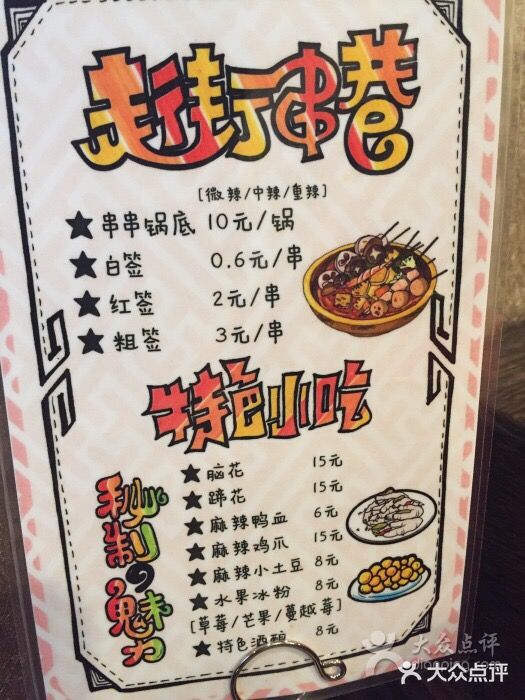 赶街串巷
[微辣/中辣/重辣]
★串串锅底 10元/锅
★白签 0.6元/串
★红签 2元/串
★粗签 3元/串
特色小吃
秘制の魅力
★脑花 15元
★蹄花 15元
★麻辣鸭血 6元
★麻辣鸡爪 15元
★麻辣小土豆 8元
★水果冰粉 8元
[草莓/芒果/蔓越莓]
★特色酒酿 8元
大众点评
dianping.com
大众点评